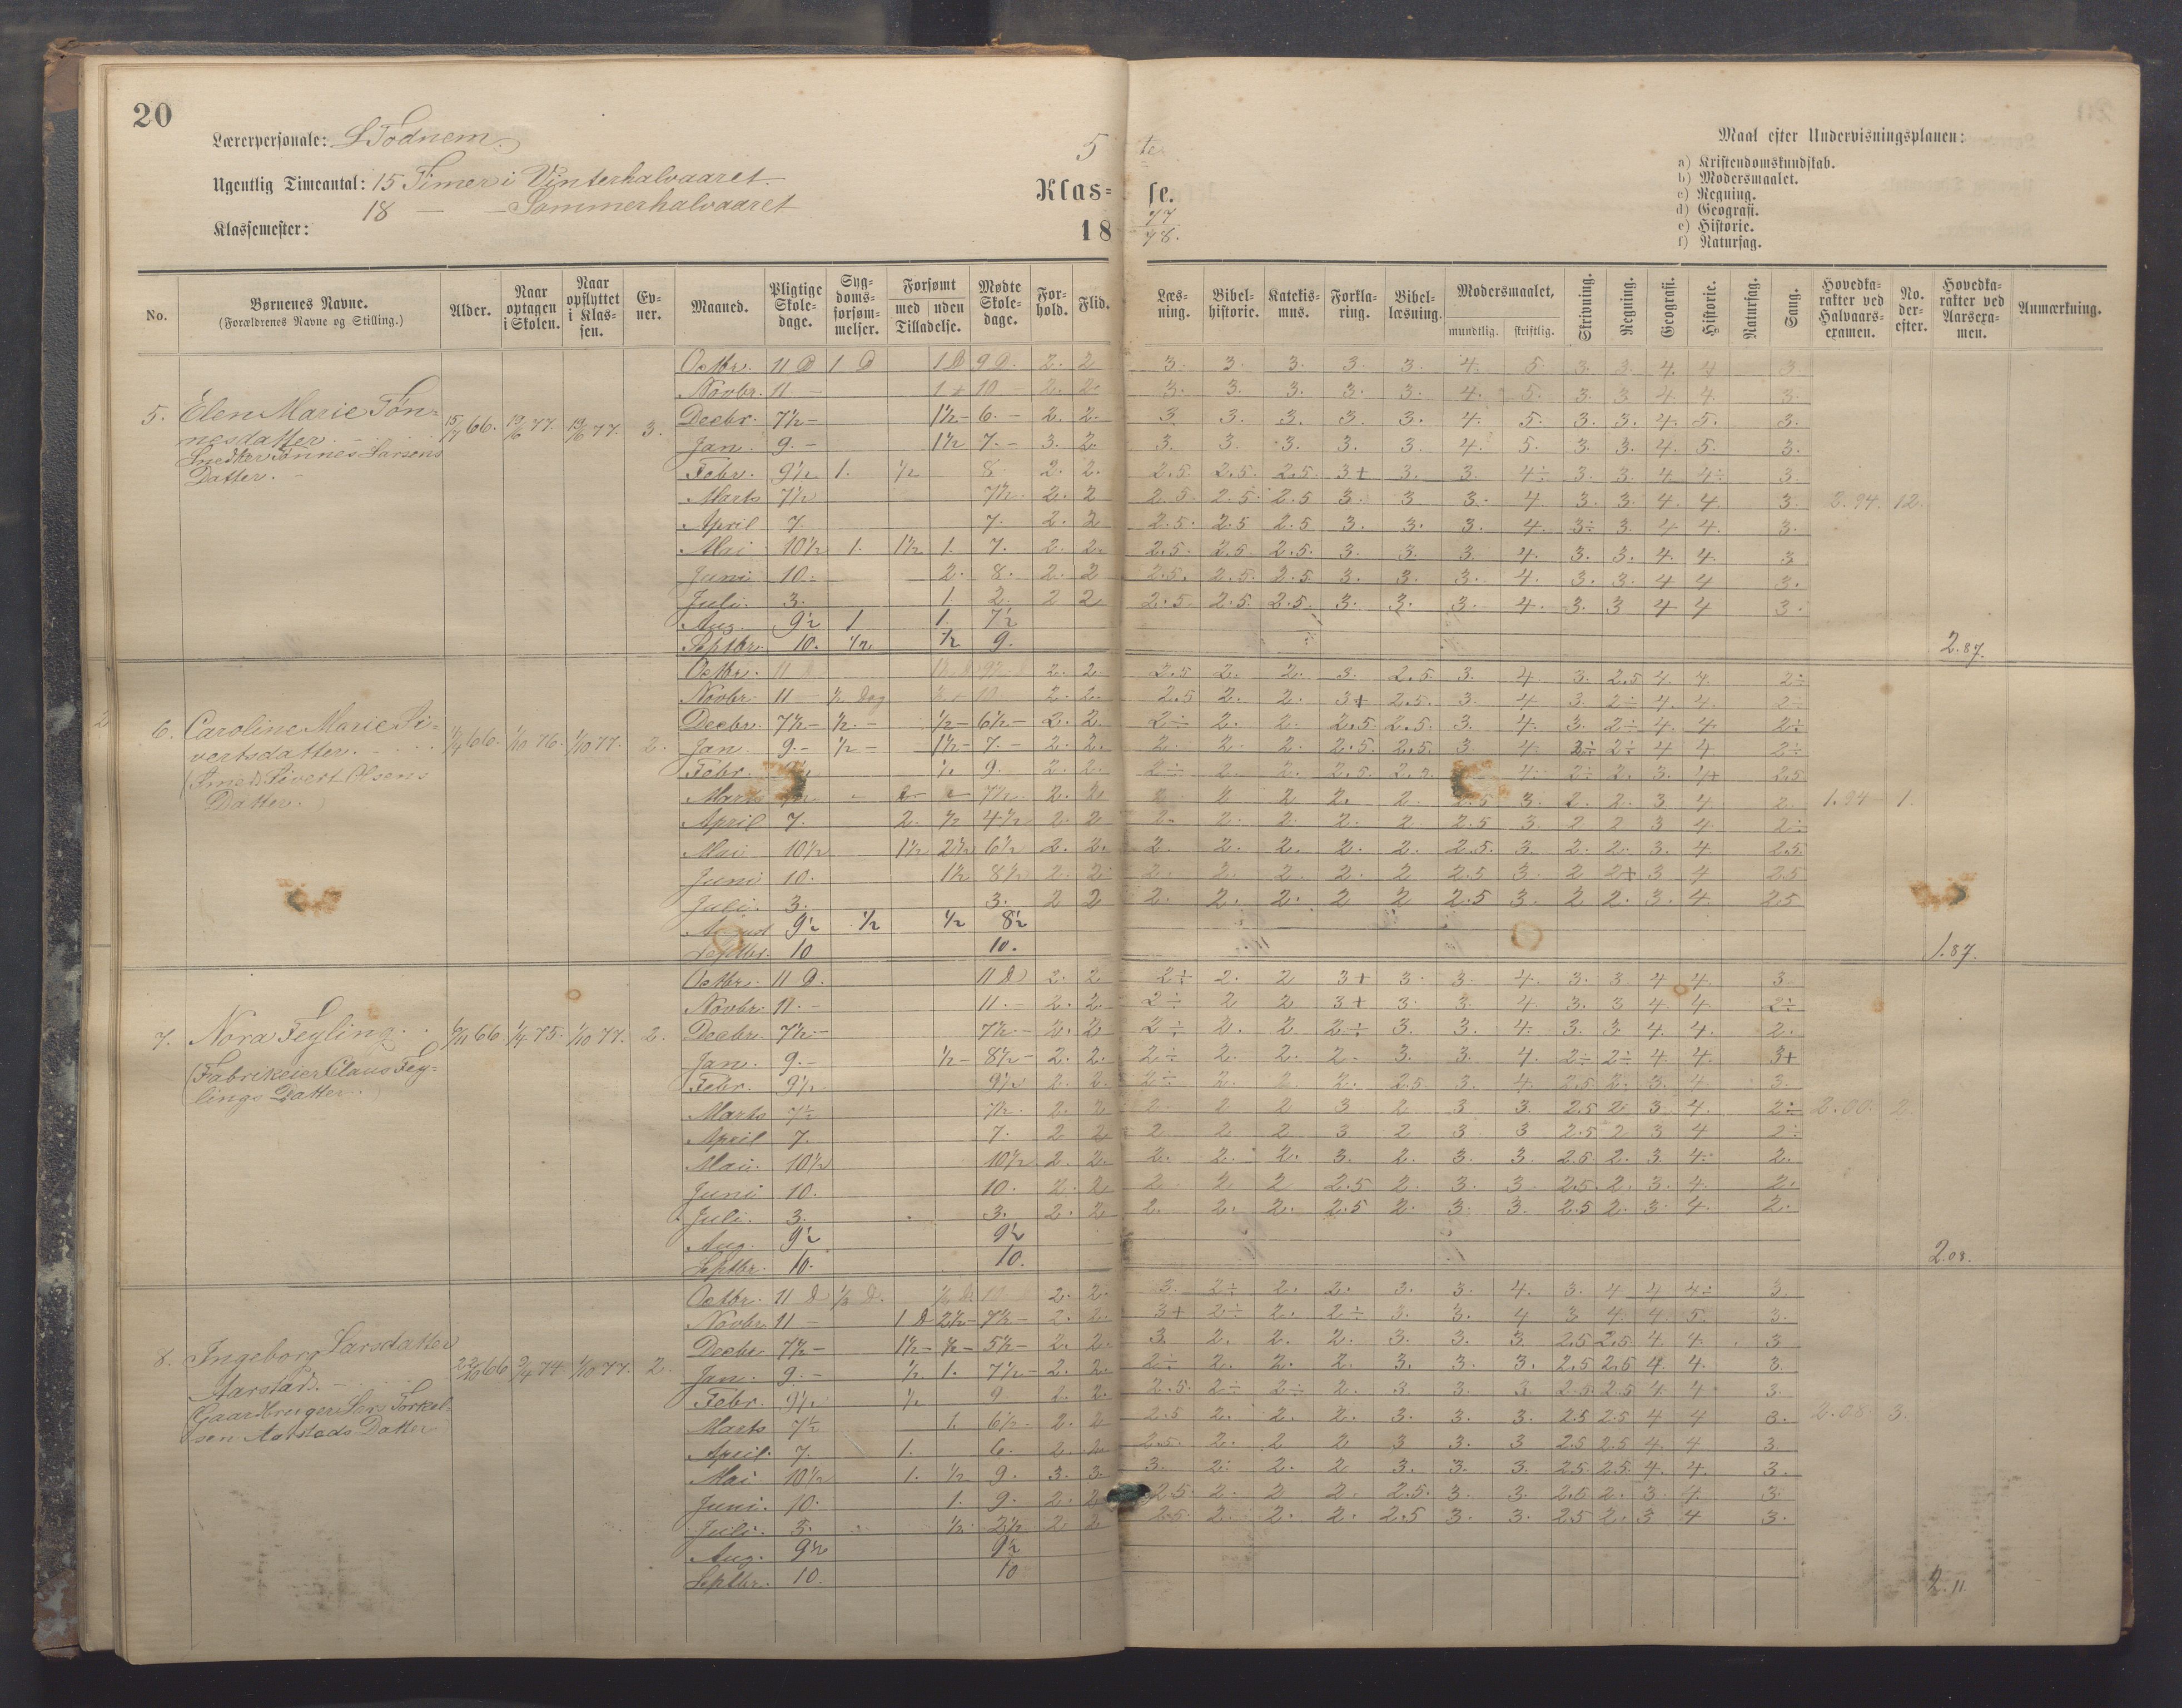 20
Lærerpersonale: S Todnem.
Ugentlig Timeantal: 15 Timer i Vinterhalvaaret.
18 — — Sommerhalvaaret
Klassemester:
5 te
Klas= se.
18 77/78.
Maal efter Undervisningsplanen:
a) Kristendomskundskab.
b) Modersmaalet.
c) Regning.
d) Geografi.
e) Historie.
f) Naturfag.
No. Børnenes Navne. (Forældrenes Navne og Stilling.) Alder. Naar optagen i Skolen. Naar opflyttet i Klassen. Evner. Maaned. Pligtige Skoledage. Sygdomsforsømmelser. Forsømt med uden Tilladelse. Mødte Skoledage. Forhold. Flid. Læsning. Bibelhistorie. Katekismus. Forklaring. Bibellæsning. Modersmaalet, mundtlig. skriftlig. Skrivning. Regning. Geografi. Historie. Naturfag. Sang. Hovedkarakter ved Halvaarsexamen. No. derefter. Hovedkarakter ved Aarsexamen. Anmærkning.
5. Elen Marie Tøn=
nesdatter. 15/7 66. 19/6 77. 19/6 77. 3.
Snedker Tønnes Larsens
Datter.
Octbr. 11 D 1 D 1 D 9 D. 2. 2 3. 3. 3. 3. 3. 4. 5. 3. 3. 4. 4 3
Novbr. 11 — 1 10 — 2. 2. 3. 3. 3. 3. 3. 4. 5. 3. 3 4. 4. 3.
Decbr. 7½ — 1½ — 6. — 2. 2. 3 3. 3. 3. 3. 4. 5. 3. 3. 4. 5. 3.
Jan. 9. — 1½ 7. — 3. 2. 3. 3. 3. 3. 3. 4. 5. 3. 3. 4. 5. 3.
Febr. 9½ 1. ½ 8. 2. 2. 2.5 2.5. 2.5. 3+ 3. 3. 4÷ 3. 3. 4. 4÷ 3.
Marts 7½ 7½. 2. 2 2.5. 2.5. 2.5 3. 3 3. 4. 3. 3. 4. 4. 3. 2.94. 12.
April 7. 7. 2. 2 2.5. 2.5 2.5 3. 3. 3. 4. 3÷ 3. 4. 4. 3.
Mai 10½ 1. 1½ 1. 7. 2. 2. 2.5. 2.5 2.5. 3. 3. 3. 4. 3. 3. 4. 4. 3
Juni 10. 2. 8. 2. 2 2.5. 2.5. 2.5 3. 3. 3. 4. 3. 3. 4 4 3.
Juli. 3. 1. 2. 2 2 2.5 2.5. 2.5. 3. 3. 3. 4. 3. 3 4 4 3.
Aug. 9½ 1 1. 7½
Septbr. 10. ½ ½ 9. 2.87.
6. Caroline Marie Si=
vertsdatter. 66. 1/10 76. 1/10 77. 2.
(Smed Sivert Olsens
Datter.)
Octbr. 11 2. 2. 2.5 2. 2. 3. 2.5 3. 4 3. 2.5 4. 4. 2÷
Novbr. 11 — ½ Dag 10 2. 2. 2.5 2. 2. 3+ 2.5. 3. 4 3. 2÷ 4. 4. 2÷
Decbr. 7½ — ½. — ½ — 6½ — 2. 2. 2÷ 2. 2. 2.5. 2.5. 3. 4. 3. 2÷ 4. 4. 2÷
Jan. 9. — ½ — 1½ — 7. — 2. 2. 2. 2. 2. 2.5. 2.5. 3 4. 3÷ 2÷ 4 4. 2÷
Febr. ½ 9. 2. 2. 2÷ 2. 2. 2.5. 4. 2÷ 2. 3. 4+ 2.5
Marts 7½. 2. 2. 2 2 2 2. 2. 2.5 3. 2. 2. 3 4. 2. 1.94 1.
April 7. 2. ½ 4½ 2. 2 2. 2. 2. 2. 2 2.5 3. 2 2 3 4. 2÷
Mai 10½ 1½ 2½ 6½ 2. 2. 2. 2. 2. 2. 2. 2.5. 3. 2. 2. 3. 4. 2.5.
Juni 10. 1½ 8½ 2. 2. 2. 2. 2. 2. 2 2.5 3. 2 2+ 3 4 2.5
Juli. 3. 3. 2 2 2. 2. 2. 2 2 2.5 3. 2 2. 3. 4. 2.5
August 9½ ½ ½ 8½
Septbr. 10 10. 1.87.
7. Nora Feyling. 66. 75. 1/10 77. 2.
(Fabrikeier Claus Fey=
lings Datter.)
Octbr. 11 D. 11 D 2. 2 2÷ 2. 2 3+ 3. 3. 4. 3. 3 4 4. 3.
Novbr. 11. — 11. — 2. 2. 2÷ 2 2 3+ 3. 3. 4. 3. 3 4 4. 2÷
Decbr. 7½. — 7½. — 2. 2 2÷ 2. 2 2÷ 3. 3. 4. 3. 3. 4. 4. 2.
Jan. 9. — ½ — 8½ — 2. 2. 2÷ 2. 2. 2. 3. 3. 4. 2÷ 2÷ 4. 4. 3+
Febr. 9½ 9½ 2. 2. 2÷ 2. 2. 2. 2.5 3. 4. 2.5 2. 3. 4 3.
Marts 7½ 7½. 2. 2 2. 2 2 3 2 3 3. 2.5 2 3 4. 2÷ 2.00. 2.
April 7. 7. 2 2 2 2 2 3 2 3 3 2.5 2 3 4 2÷
Mai. 10½ 10½ 2. 2. 2. 2. 2. 3. 2. 3. 3. 2.5 2. 3. 4. 2.
Juni 10. 10. 2. 2 2 2 2 2.5 2. 3. 3 2.5. 2. 3. 4. 2.
Juli. 3. 3. 2. 2 2. 2. 2. 2.5 2. 3. 3. 2.5 2. 3. 4. 2.
Aug. 9½ 9½
Septbr. 10. 10. 2.08.
8. Ingeborg Larsdatter
Aarstad. 66 74. 1/10 77. 2.
(Gaardbruger Lars Torkel=
sen Aarstads Datter
Octbr. 11 D ½ D. 2. 2. 3. 2÷ 2. 2. 3. 3. 4. 3. 4 4 4÷ 3
Novbr 11 — 1 D 2½ — 7½ — 2. 2. 3+ 2÷ 2. 2÷ 3. 3. 4 3 4. 4. 5. 3.
Decbr. 7½ — 1½ — ½ — 5½ — 2. 2. 3. 2. 2. 2. 3. 3. 3. 2.5 2.5. 4 4. 3
Jan. 9. — ½ 1. 7½ — 2. 2. 2÷ 2. 2. 2. 3. 3. 3. 2.5 2.5 4. 4. 3.
Febr. 9½ ½ 9 2. 2. 2.5. 2÷ 2÷ 2. 3. 3. 3. 2.5. 2.5 4. 4 3.
Marts 7½ 1. 6½ — 2. 2 2.5 2. 2. 2. 3. 3. 3. 2.5 2.5 4 4 3. 2.08. 3.
April. 7. 1. 6. 2. 2. 2.5. 2. 2 2 3 3. 3 2.5 2.5 4. 4 3.
Mai. 10½ 1. ½ 9. 3. 3. 3. 2. 2. 2 3. 3. 3. 2.5. 2.5. 4. 4. 3.
Juni. 10. 1. 9. 2. 2 2.5. 2. 2 2. 2.5. 3. 3. 2.5 2. 3 4. 3.
Juli. 3. ½. 2½ 2 2 2.5. 2. 2. 2. 2.5 3. 3. 2.5 2. 3 4 3.
Aug. 9½ 9½
Septbr. 10. 10 2.11